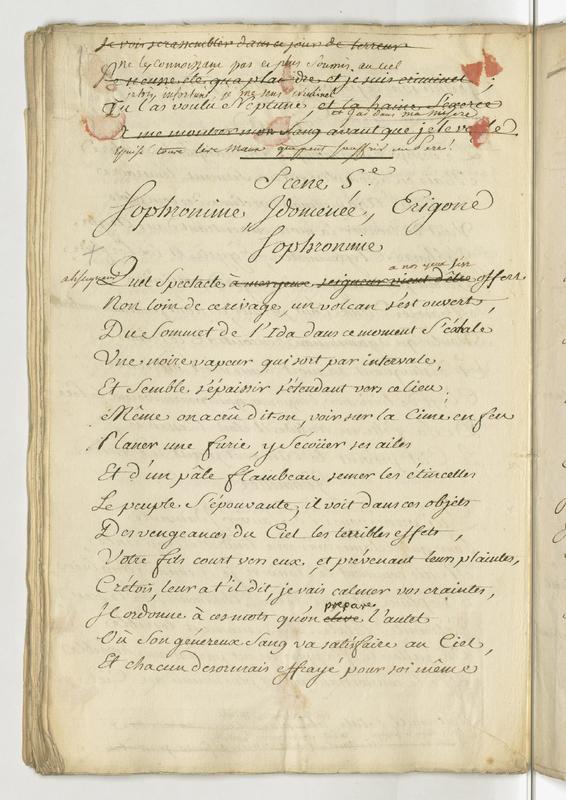 Je vois rassembler dans ce jour de terreur
ne le connoissant pas et plus soumis au ciel
et je suis criminel ;
infortuné, je me sens criminel
Tu l'as voulu Neptune, et la haine
dans ma misere
Et me montrer mon Sang avant que je le verse
Epuisé tous les Maux que peut souffrir un Pere !
Scene 5.e
Sophronime Idomenée, Erigone
Sophronime
ah seigneur
a nos yeux s'est
Quel Spectacle à mes yeux seigneur vient d'être offert
Non loin de ce rivage, un volcan s'est ouvert,
Du Sommet de l'Ida dans ce moment S'éxhale
Une noire vapeur qui sort par intervale,
Et Semble s'épaissir s'étendant vers ce lieu ;
Même on a crû dit-on, voir sur la Cime en feu
Planer une furie, y Secoüer ses ailes
Et d'un pâle flambeau semer les étincelles
Le peuple S'épouvante, il voit dans ces objets
Des vengeances du Ciel les terribles effets,
Votre fils court vers eux, et prévenant leurs plaintes,
Crétois, leur a t'il dit, je vais calmer vos craintes,
prepare
Il ordonne à ces mots qu'on élève l'autel
Où Son généreux Sang va satisfaire au Ciel,
Et chacun desormais effrayé pour soi même